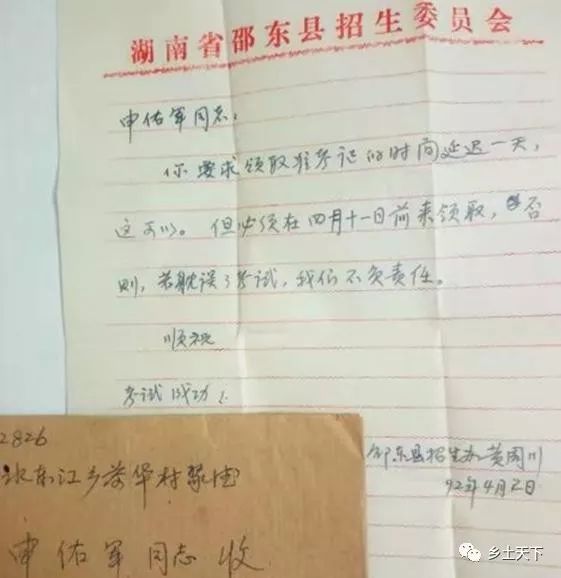 湖南省邵东县招生委员会
申佑军同志:
你要求领取准考证的时间延迟一天,
这可以。但必须在四月十一日前来领取,否
则,若耽误了考试,我们不负责任。
顺祝
考试成功!
邵东县招生办黄周川
92年4月2日
2826
水东江乡
村
申佑军同志收
乡土天下